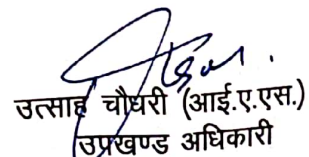 उत्साह चौधरी (आई.ए.एस.)
उपखण्ड अधिकारी